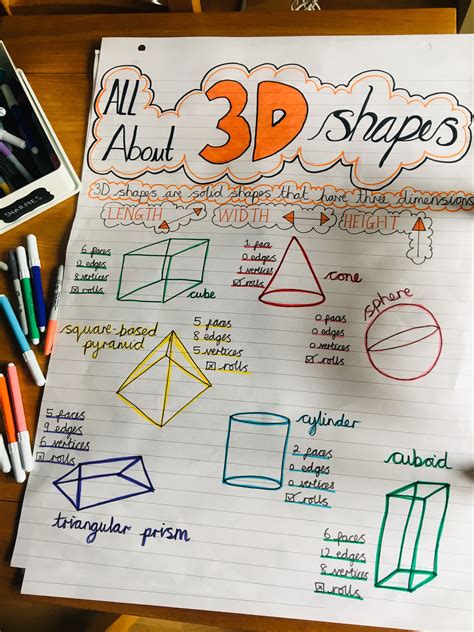 ALL
About
3D shapes
3D shapes are solid shapes that have three dimensions
LENGTH
WIDTH
HEIGHT
SHARPIES
6 faces
12 edges
8 vertices
☒ rolls
cube
1 face
0 edges
1 vertices
☑ rolls
cone
sphere
0 faces
0 edges
0 vertices
☑ rolls
square-based
pyramid
5 faces
8 edges
5 vertices
☒ rolls
5 faces
9 edges
6 vertices
☒ rolls
triangular prism
cylinder
2 faces
0 edges
0 vertices
☑ rolls
cuboid
6 faces
12 edges
8 vertices
☒ rolls